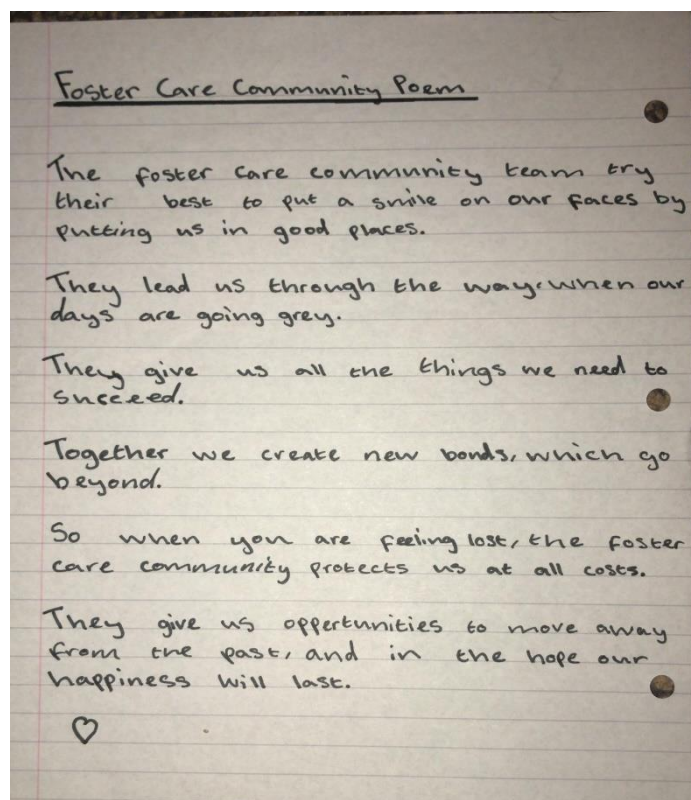 Foster Care Community Poem
The foster care community team try
their best to put a smile on our faces by
putting us in good places.
They lead us through the way, when our
days are going grey.
They give us all the things we need to
succeed.
Together we create new bonds, which go
beyond.
So when you are feeling lost, the foster
care community protects us at all costs.
They give us oppertunities to move away
from the past, and in the hope our
happiness will last.